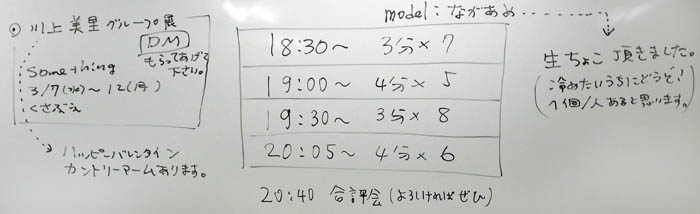 川上 美里 グループ展
DM
もらってあげて
下さい。
Something
3/7(水)〜12(月)
くさぶえ
ハッピーバレンタイン
カントリーアームあります。
model:ながあめ
18:30〜 3分×7
19:00〜 4分×5
19:30〜 3分×8
20:05〜 4分×6
20:40 合評会(よろしければぜひ)
生ちょこ頂きました。
(冷めたいうちにどうぞ!
1個/人あると思います。)